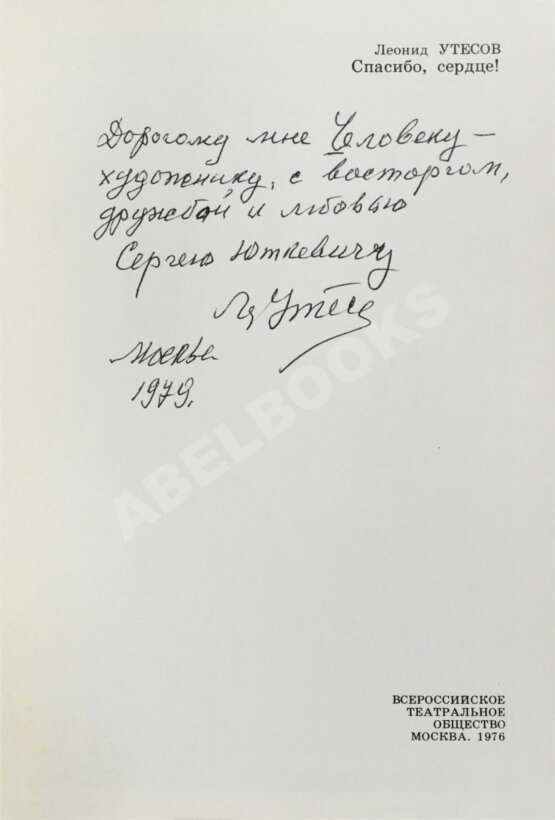 Леонид УТЕСОВ
Спасибо, сердце!
Дорогому мне Человеку —
художнику, с восторгом,
дружбой и любовью
Сергею Юткевичу
Л Утесов
Москва
1979.
ABELBOOKS
ВСЕРОССИЙСКОЕ
ТЕАТРАЛЬНОЕ
ОБЩЕСТВО
МОСКВА. 1976